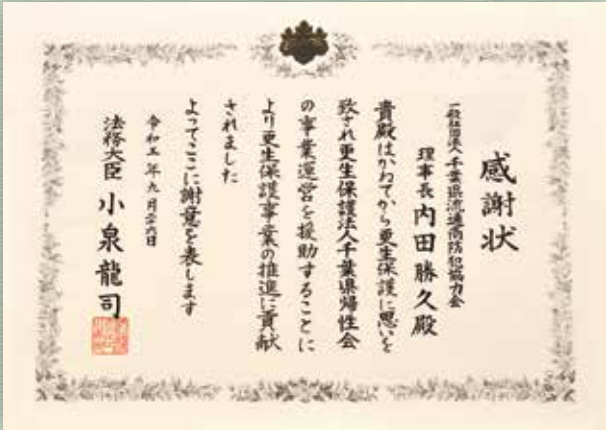 感謝状
一般社団法人千葉県流通商防犯協力会
理事長 内田勝久殿
貴殿はかねてから更生保護に思いを
致され更生保護法人千葉県帰性会
の事業運営を援助することに
より更生保護事業の推進に貢献
されました
よってここに謝意を表します
令和五年九月二十六日
法務大臣 小泉龍司